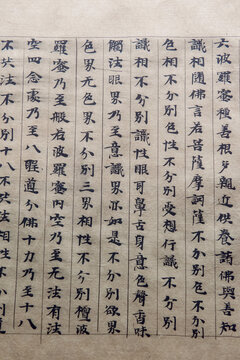 六波羅蜜種善根多親近供養諸佛與善知
識相隨佛言若菩薩摩訶薩不分別色不分別
色相不分別色性不分別受想行識不分別
識相不分別識性眼耳鼻舌身意色聲香味
觸法眼界乃至意識界亦如是不分別欲界
色界无色界不分別三界相性不分別檀波
羅蜜乃至般若波羅蜜內空乃至无法有法
空四念處乃至八聖道分佛十力乃至十八
不共法不分別十八不共法相性不